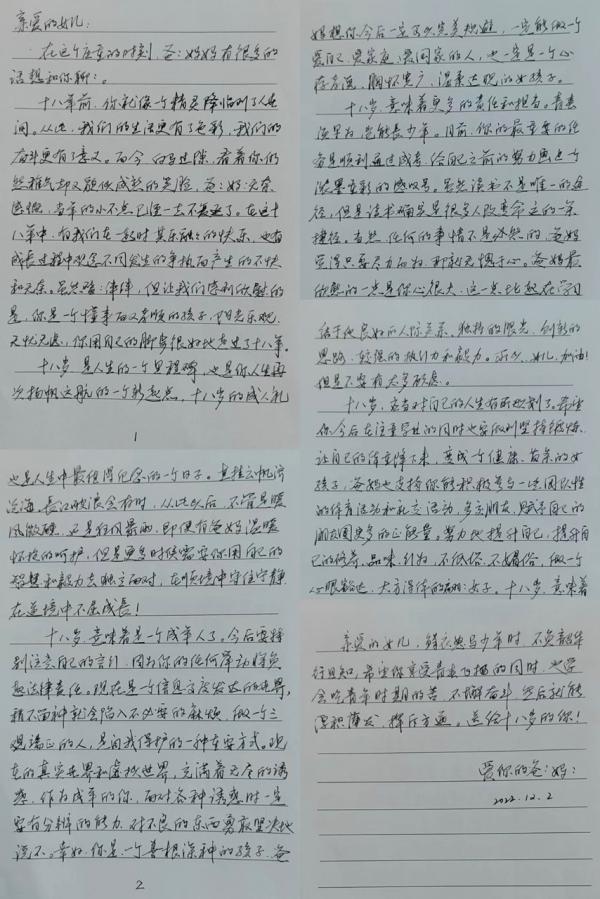 亲爱的女儿:
在这个庄重的时刻,爸:妈妈有很多的
话想和你聊:。
十八年前,你就像一个精灵降临到了人世
间。从此,我们的生活更有了色彩,我们的
奋斗更有了意义。而今,白驹过隙,看着你仍
然稚气却又貌似成熟的笑脸,爸:妈:无奈
感慨,当年的小不点已经一去不复返了。在这十
八年中,有我们在一起时其乐融融的快乐,也有
成长过程中观念不同发生的争执而产生的不快
和无奈。虽然磕:绊绊,但让我们胜利欣慰的
是,你是一个懂事而又孝顺的孩子,阳光乐观,
无忧无虑,你用自己的脚步很好地走过了十八年。
十八岁,是人生的一个里程碑,也是你人生再
次扬帆远航的一个新起点,十八岁的成人礼
1
也是人生中最值得纪念的一个日子。直挂云帆济
沧海,长江破浪会有时,从此以后,不管是暖
风微醺,还是狂风暴雨,即便有爸妈温暖
怀抱的呵护,但是更多时候需要你用自己的
智慧和毅力去独立面对,在顺境中守住宁静
在逆境中不屈成长!
十八岁,意味着是一个成年人了。今后要特
别注意自己的言行,因为你的任何举动将负
起法律责任。现在是一个信息高度发达的世界,
稍不留神就会陷入不必要的麻烦,做一个三
观端正的人,是自我保护的一种重要方式。现
在的真实世界和虚拟世界,充满着无尽的诱
惑,作为成年的你,面对各种诱惑时一定
要有分辨的能力,对不良的东西勇敢坚决地
说不。幸好,你是一个善根深种的孩子,爸
2
妈想你今后一定可以完美规避,一定能做一个
爱自己,爱家庭,爱国家的人,也一定是一个心
存高远,胸怀宽广,温柔达观的女孩子。
十八岁,意味着更多的责任和担当。青春
须早为,岂能长少年。目前,你的最重要的任
务是顺利通过高考,给自己之前的努力画上一个
浓墨重彩的感叹号。虽然读书不是唯一的途
径,但是读书确实是很多人改变命运的一条
捷径。当然,任何的事情不是必然的,爸妈
觉得只要尽力而为,那就无愧于心。爸妈最
欣慰的一点是你心很大,这一点比起在学习
给予你良好的人际关系、独特的眼光,创新的
思路,较强的执行力和毅力。所以,女儿,加油!
但是不要有太多顾虑。
十八岁,应当对自己的人生有所规划了。希望
你今后在注重学业的同时也要做到坚持锻炼,
让自己的体重降下来,变成个健康、苗条的女
孩子,爸妈也支持你能积极参与一些团队性
的体育活动和社交活动,多交朋友,赋予自己的
朋友圈更多的正能量。努力地提升自己,提升自
己的修养、品味、行为,不低俗,不媚俗,做一个
心眼豁达,大方得体的女子。十八岁,意味着
亲爱的女儿,鲜衣怒马少年时,不负韶华
行且知,希望你享受青春飞扬的同时,也学
会吃青年时期的苦,不懈奋斗,然后就能
厚积薄发,挥斥方遒。送给十八岁的你!
爱你的爸:妈:
2022.12.2